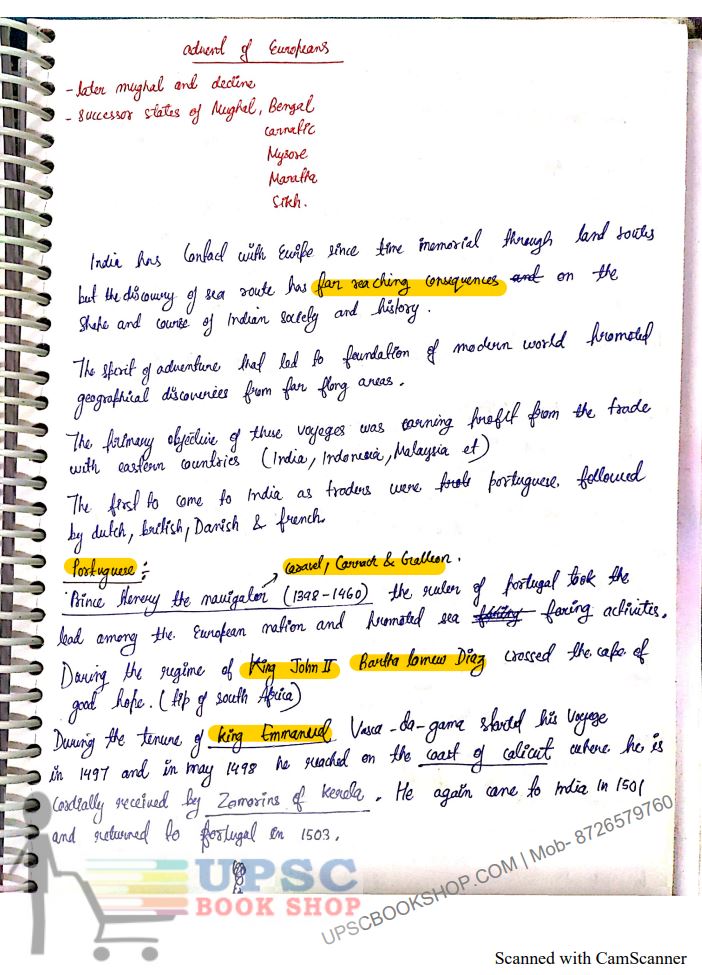 advent of Europeans
- later mughal and decline
- successor states of Mughal, Bengal
Carnatic
Mysore
Maratha
Sikh.
India has Contact with Europe since time memorial through land routes
but the discovery of sea route has far reaching consequences and on the
shape and course of Indian society and history.
The spirit of adventure that led to foundation of modern world promoted
geographical discoveries from far flong areas.
The primary objective of these voyages was earning profit from the trade
with eastern countries (India, Indonesia, Malaysia et)
The first to come to India as traders were portuguese, followed
by dutch, british, Danish & french.
Caravel, Carrack & Galleon.
Portuguese :-
Prince Henery the navigator (1398-1460) the ruler of portugal took the
lead among the European nation and promoted sea faring activites.
During the rugime of King John II Bartha lomew Diaz crossed the cape of
good hope. (tip of south Africa)
During the tenure of king Emmanuel Vasca-da-gama started his voyage
in 1497 and in may 1498 he reached on the coast of calicut where he is
Cordially received by Zamorins of Kerela. He again came to India in 1501
and returned to portugal in 1503.
UPSC
BOOK SHOP
UPSCBOOKSHOP.COM | Mob- 8726579760
Scanned with CamScanner